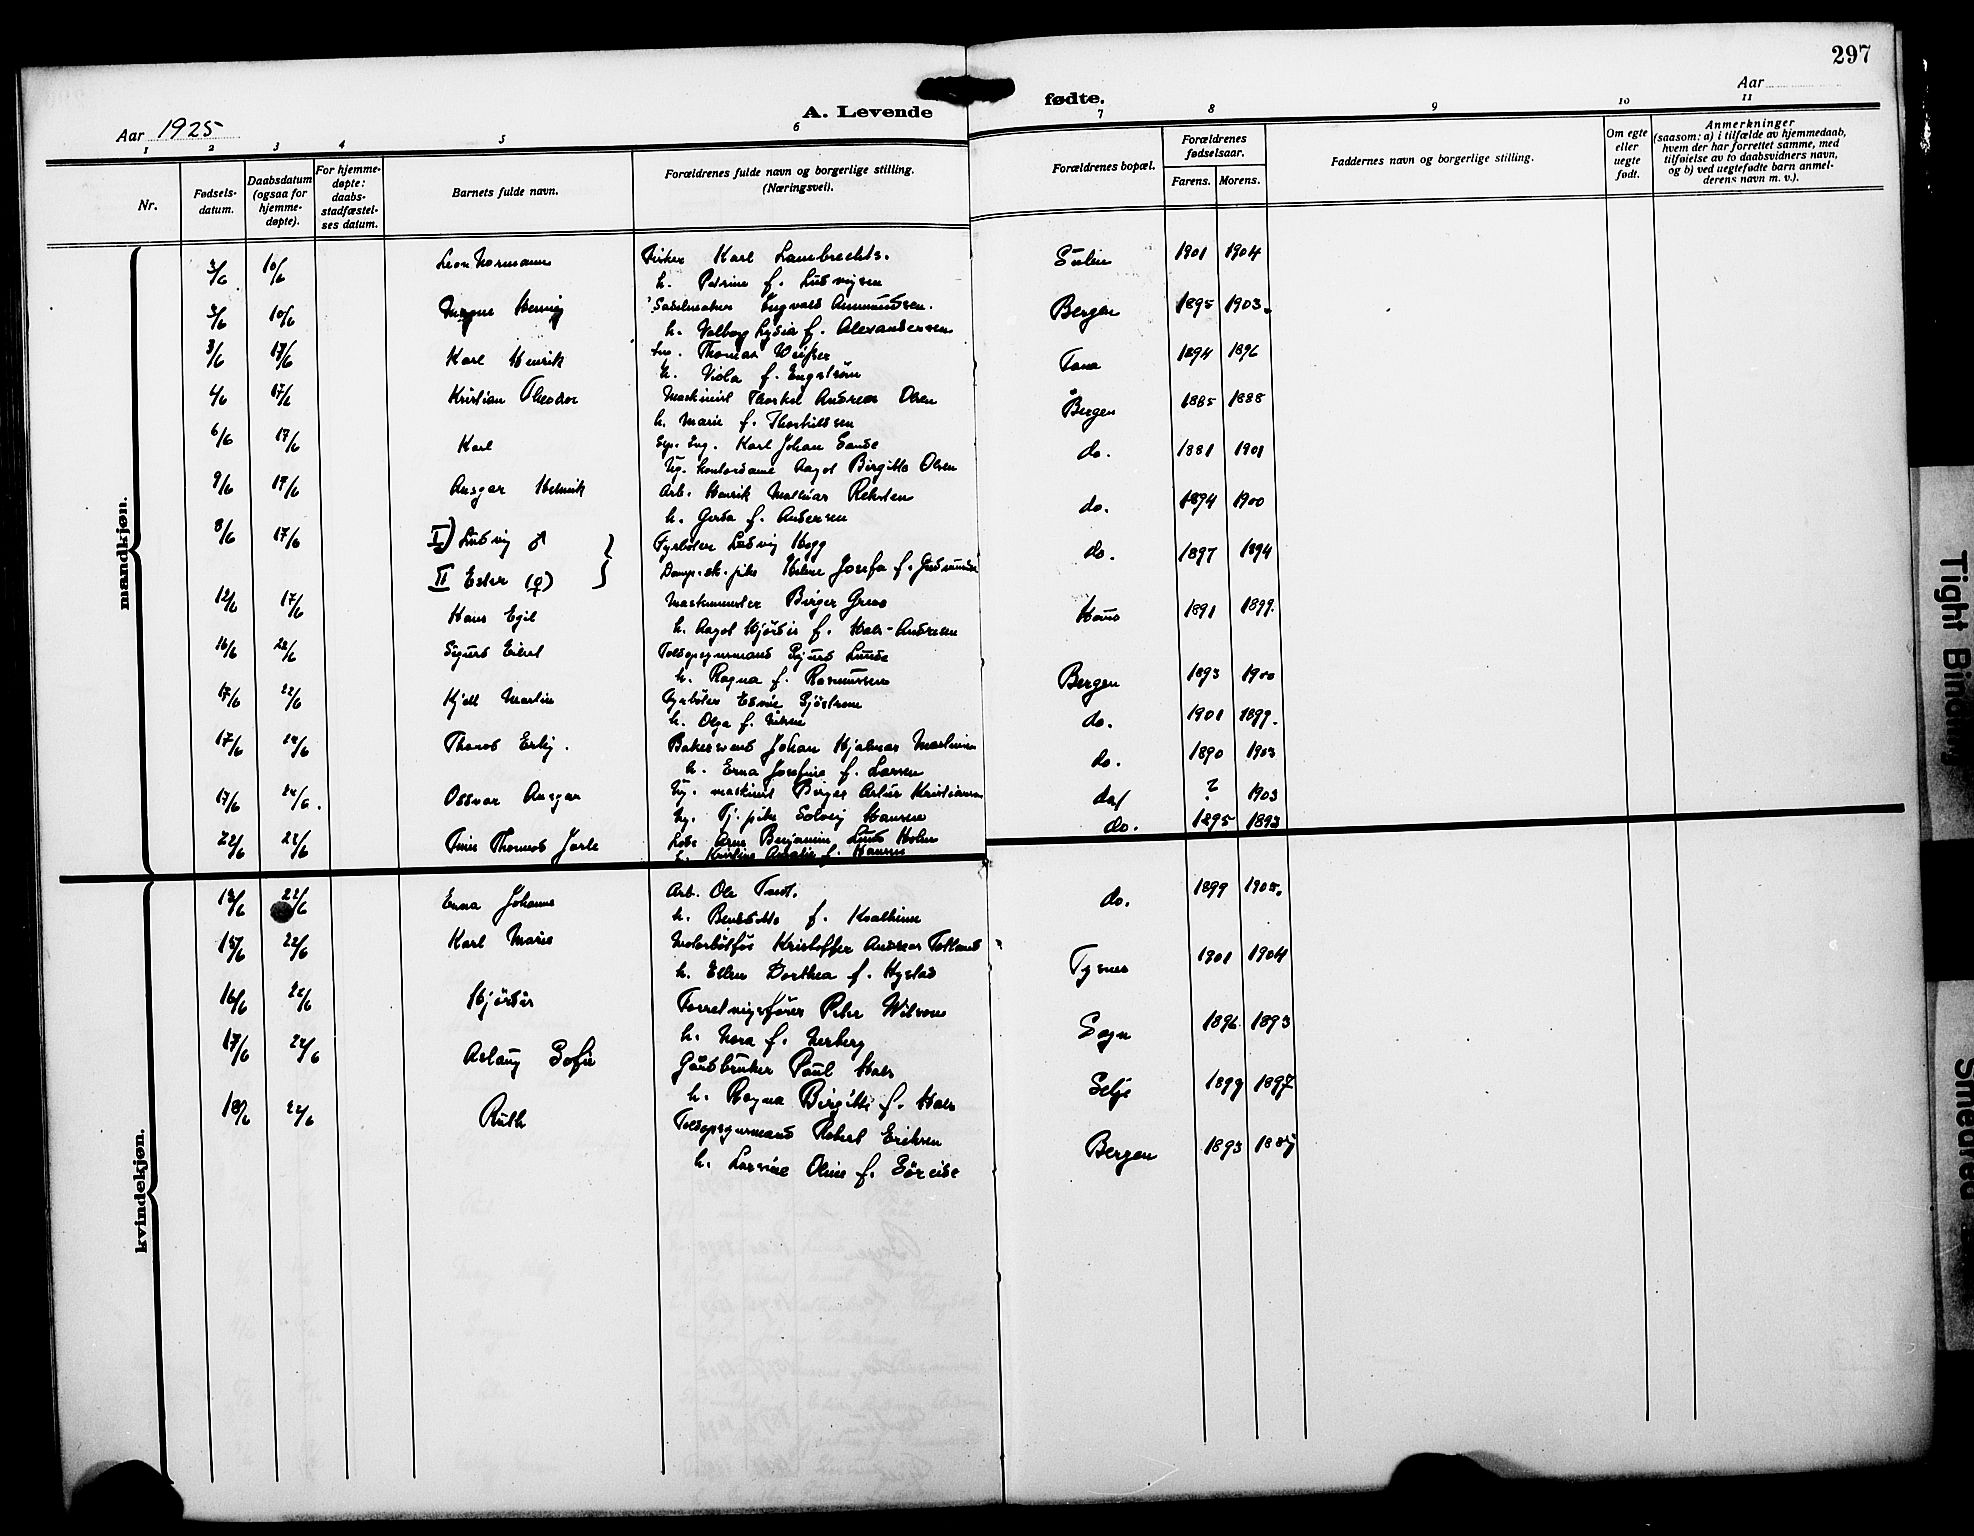 297
A. Levende fødte.
Aar 1925
Aar
1 2 3 4 5 6 7 8 9 10 11
Nr.
Fødsels-
datum.
Daabsdatum
(ogsaa for
hjemme-
døpte).
For hjemme-
døpte:
daabs-
stadfæstel-
ses datum.
Barnets fulde navn.
Forældrenes fulde navn og borgerlige stilling.
(Næringsvei).
Forældrenes bopæl.
Forældrenes
fødselsaar.
Farens. Morens.
Faddernes navn og borgerlige stilling.
Om egte
eller
uegte
født.
Anmerkninger
(saasom: a) i tilfælde av hjemmedaab,
hvem der har forrettet samme, med
tilføielse av to daabsvidners navn,
og b) ved uegtefødte barn anmel-
derens navn m. v.).
mandkjøn.
3/6 10/6 Leon Normann Fisker Karl Lambrechts. Sulen 1901 1904
h. Petrine f. Ludvigsen
3/6 10/6 Magne Henvig Sadelmaker Ingvald Ammundsen. Bergen 1895 1903.
h. Valborg Lydia f. Alexandersen
3/6 17/6 Karl Henrik Thomas Fana 1894 1896
h. Viola f. Engstrøm
4/6 17/6 Kristian Theodor Maskinist Thorkel Andreas Olsen Bergen 1885 1888
h. Marie f. Thorkildsen
6/6 17/6 Karl Karl Johan Sande do. 1881 1901
Ug. kontordame Aagot Birgitte Olsen
9/6 17/6 Ansgar Henrik Arb. Henrik Reksten do. 1894 1900
h. Gerda f. Andersen
8/6 17/6 I) Ludvig ♂ Fyrbøter Ludvig Hogg do. 1897 1894
II Ester (♀) Helene Josefa f. Gudmunds
12/6 17/6 Hans Egil Maskinmester Birger Haus 1891 1899.
h. Aagot Hjørdis f. Hals-Andresen
16/6 22/6 Sigurd Toldopsynsmand Sjurd Lunde Bergen 1893 1900
h. Ragna f. Rasmussen
17/6 22/6 Kjell Martin Fyrbøter Edvin Sjøstrøm do. 1901 1899.
h. Olga f. Nilsen
17/6 24/6 Thoralf Erling. Bakersvend Johan Hjalmar Martinsen do. 1890 1903
h. Erna Josefine f. Larsen
17/6 24/6. Oddvar Ansgar Ug. maskinist Birger Artur Kristiansen ? 1903
Ug. Tj. pike Solveig Hansen
22/6 22/6 Thomas Jarle Arne Benjamin Holm do. 1895 1893
h. Kristine Amalie f. Hansen
kvindekjøn.
13/6 22/6 Erna Johanne Arb. Ole do. 1899 1905.
h. Bendikte f. Kvalheim
15/6 22/6 Karl Marie Kristoffer Andreas Tolland Tysnes 1901 1904
h. Ellen Dorthea f. Nystad
16/6 22/6 Hjørdis Forretningsfører Peter Wilson Sogn 1896 1893
h. Nora f. Nerberg
17/6 24/6 Aslaug Sofie Gårdbruker Paul Hals Selje 1899 1897
h. Ragna Birgitte f. Hals
18/6 24/6 Ruth Toldopsynsmand Robert Eriksen Bergen 1893
h. Larsine Oline f. Søreide
Tight Binding
Smeared